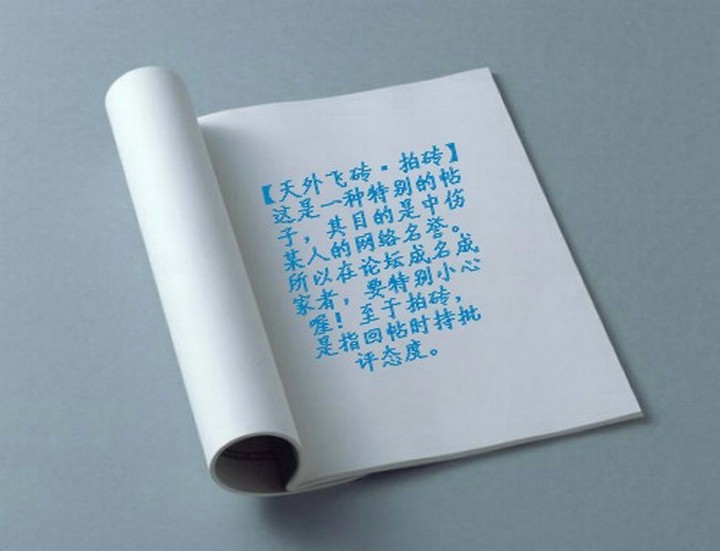 【天外飞砖·拍砖】
这是一种特别的帖
子，其目的是中伤
某人的网络名誉。
所以在论坛成名成
家者，要特别小心
喔！至于拍砖，
是指回帖时持批
评态度。